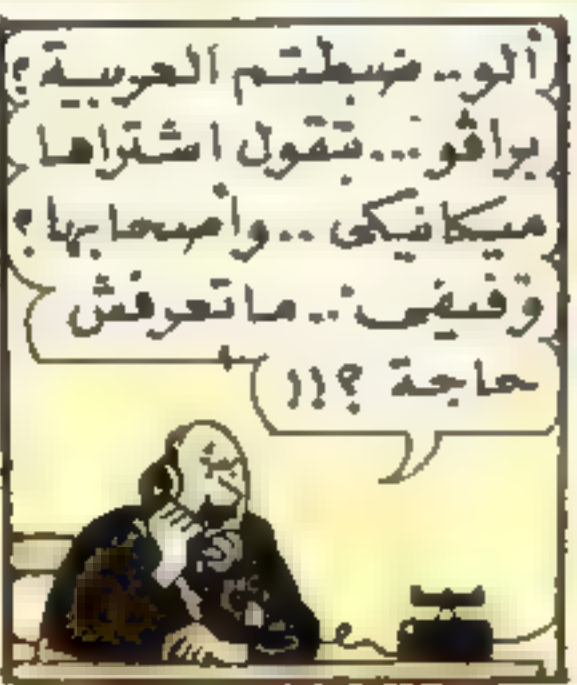 ألو.. ضبطتم العربية؟
براڤو... بتقول اشتراها
ميكانيكى.. وأصحابها؟
وفيفى.. ماتعرفش
حاجة؟!!